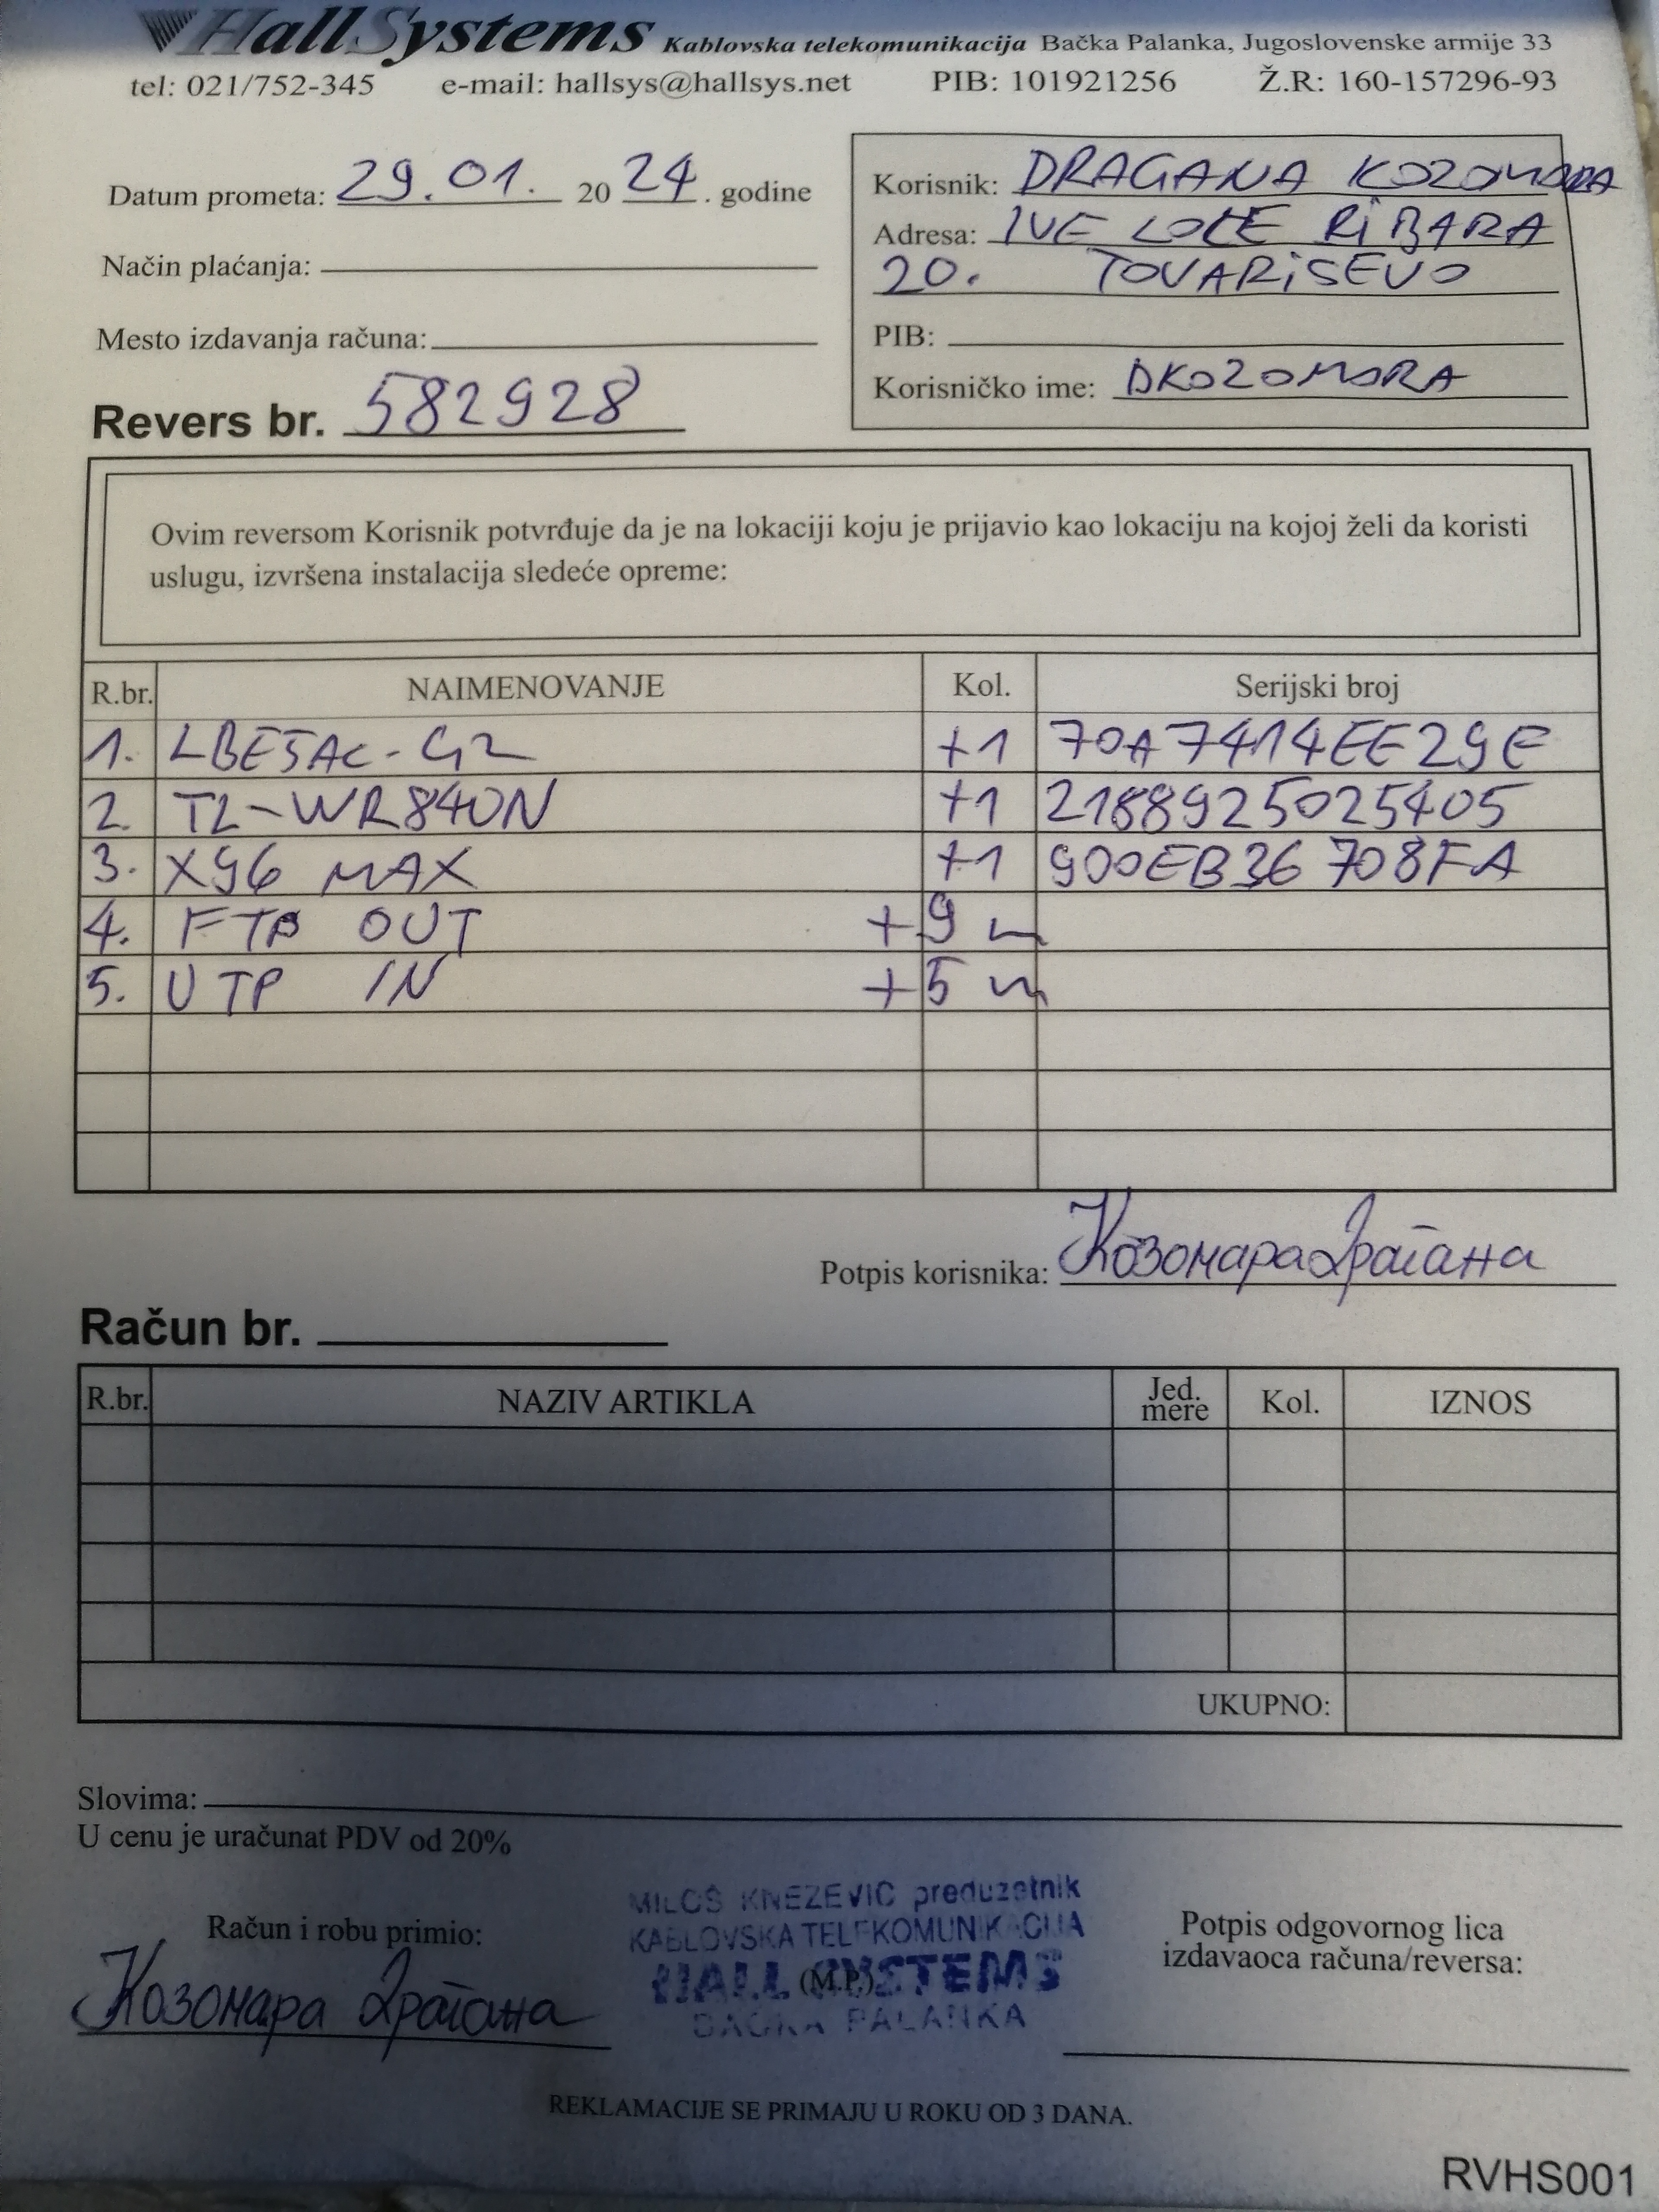 HallSystems Kablovska telekomunikacija Bačka Palanka, Jugoslovenske armije 33
tel: 021/752-345 e-mail: hallsys@hallsys.net PIB: 101921256 Ž.R: 160-157296-93
Datum prometa: 29.01. 2024. godine
Korisnik: DRAGANA KOZOMORA
Adresa: IVE LOLE RIBARA
20. TOVARISEVO
Način plaćanja:
Mesto izdavanja računa:
PIB:
Korisničko ime: DKOZOMORA
Revers br. 582928
Ovim reversom Korisnik potvrđuje da je na lokaciji koju je prijavio kao lokaciju na kojoj želi da koristi
uslugu, izvršena instalacija sledeće opreme:
R.br. NAIMENOVANJE Kol. Serijski broj
1. LBE5AC-G2 +1 70A7414EE29E
2. TL-WR840N +1 2188925025405
3. X96 MAX +1 900EB36708FA
4. FTP OUT +9 m
5. UTP IN +5 m
Potpis korisnika: Козомара Драгана
Račun br.
R.br. NAZIV ARTIKLA Jed. mere Kol. IZNOS
UKUPNO:
Slovima:
U cenu je uračunat PDV od 20%
MILOŠ KNEZEVIC preduzetnik
KABLOVSKA TELEKOMUNIKACIJA
HALL SYSTEMS
BAČKA PALANKA
(M.P.)
Račun i robu primio:
Козомара Драгана
Potpis odgovornog lica
izdavaoca računa/reversa:
REKLAMACIJE SE PRIMAJU U ROKU OD 3 DANA.
RVHS001